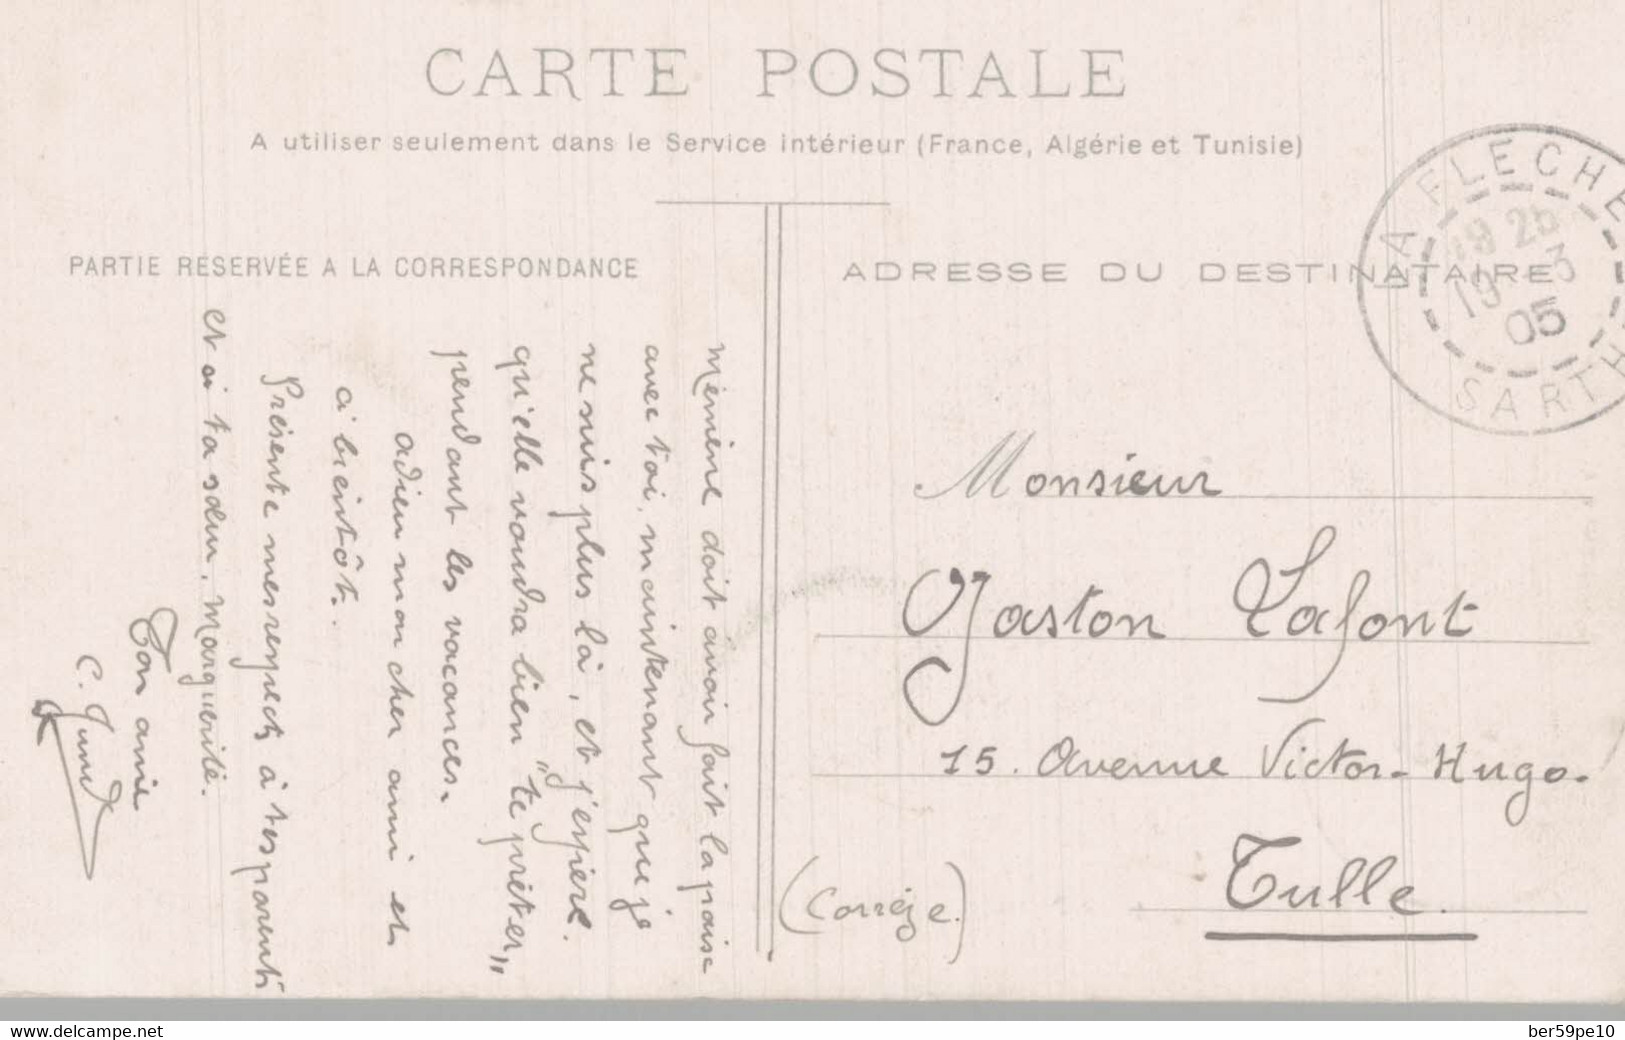 CARTE POSTALE
A utiliser seulement dans le Service intérieur (France, Algérie et Tunisie)
PARTIE RESERVÉE A LA CORRESPONDANCE
Mémène doit avoir fait la paix
avec toi, maintenant que je
ne suis plus là, et j'espère
qu'elle voudra bien "te prêter"
pendant les vacances.
Adieu mon cher ami et
à bientôt.
Présente mes respects à tes parents
et à ta sœur, Marguerite.
Ton amie
C.
ADRESSE DU DESTINATAIRE
LA FLECHE
19 3
05
SARTHE
Monsieur
Gaston Lafont
15. Avenue Victor-Hugo.
Tulle.
(Corrèze.)
www.delcampe.net
ber59pe10